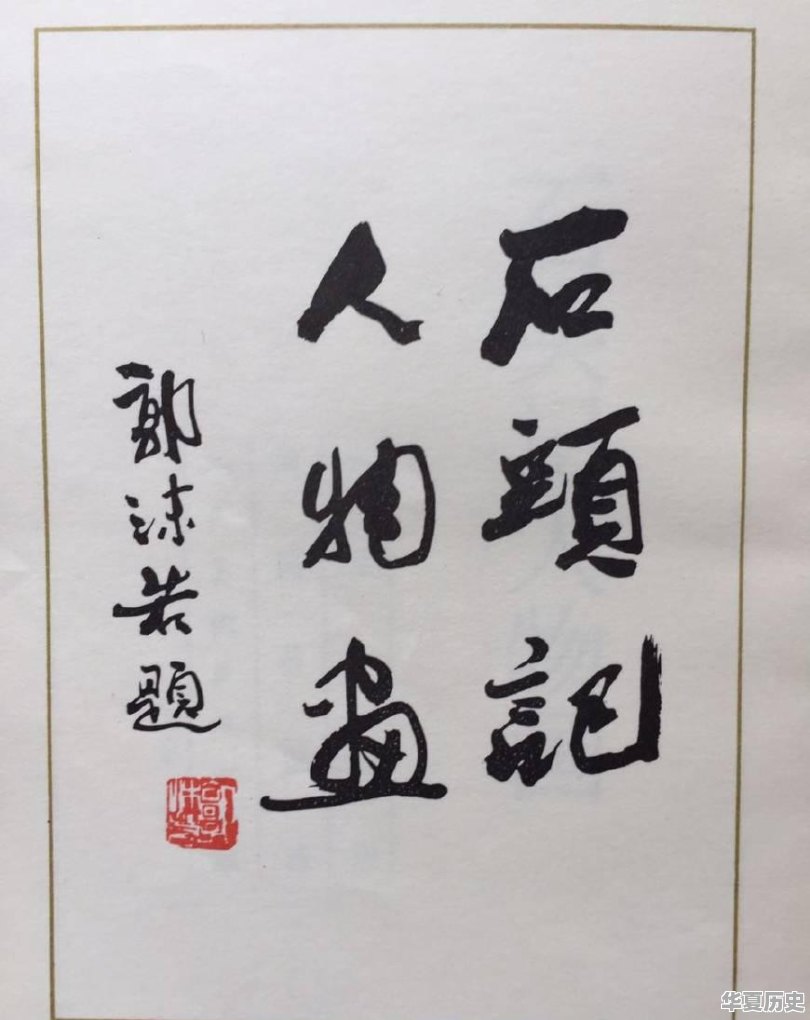 石頭記
人物畫
郭沫若題
郭沫若
华夏历史